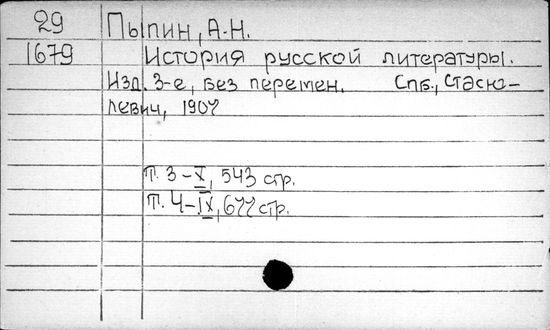 29 Пыпин, А.Н.
1679 История русской литературы.
Изд. 3-е, без перемен. Спб., Стасю-
левич, 1907
Т. 3 - X, 543 стр.
Т. 4 - IX, 677 стр.